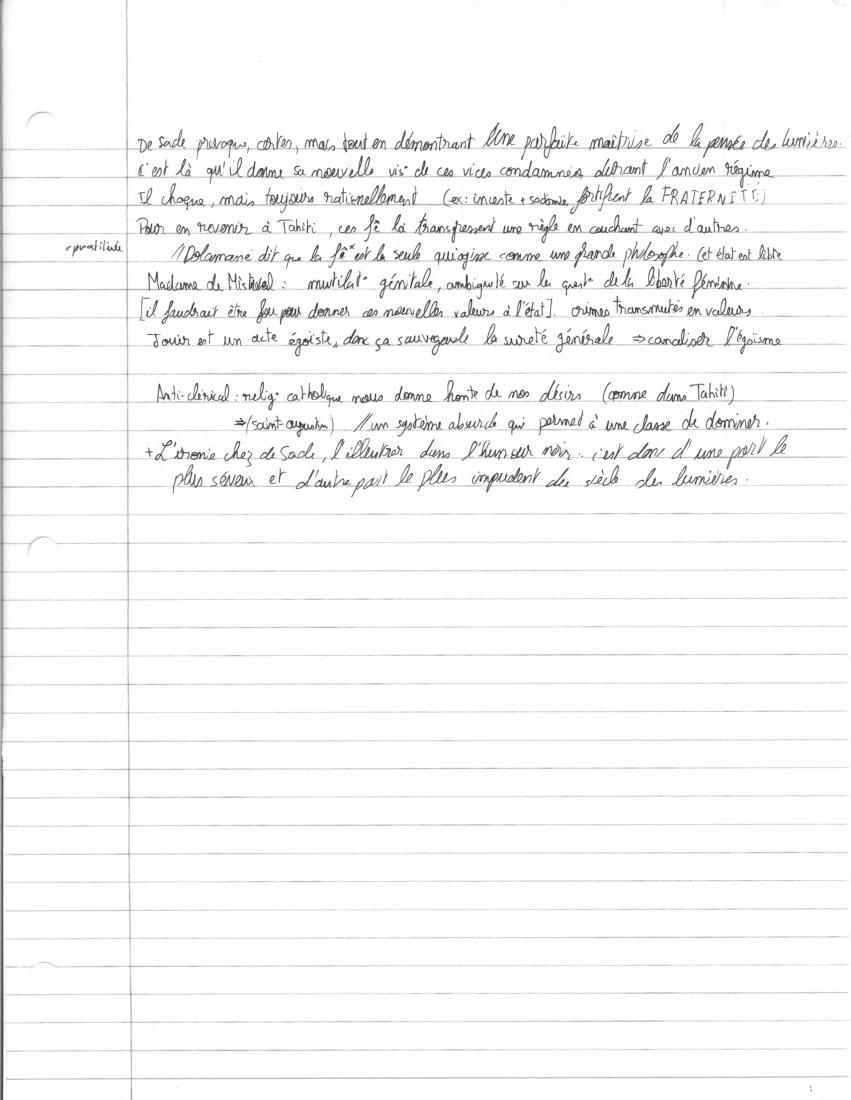 De Sade provoque, certes, mais tout en démontrant une parfaite maîtrise de la pensée des lumières.
C'est là qu'il donne sa nouvelle vis° de ces vices condamnés durant l'ancien régime
Il choque, mais toujours rationellement (ex: inceste + sodomie fortifient la FRATERNITÉ)
Pour en revenir à Tahiti, ces fê là transgressent une règle en couchant avec d'autres.
* prostituée
// Dolamancé dit que la fê* est la seule qui agisse comme une grande philosophe. (et état est libre
Madame de Mistival : mutilat° génitale, ambiguité sur la quest° de la liberté féminine.
[il faudrait être fou pour donner ces nouvelles valeurs à l'état]. crimes transmutés en valeurs
Jouir est un acte égoïste, donc ça sauvegarde la sureté générale ⇒ canaliser l'égoïsme
Anti-clérical : relig° catholique nous donne honte de nos désirs (comme dans Tahiti)
⇒ (saint augustin) // un système absurde qui permet à une classe de dominer.
+ L'ironie chez de Sade, l'illustrer dans l'humour noir. c'est donc d'une part le
plus sérieux et d'autre part le plus impudent du siècle des lumières.